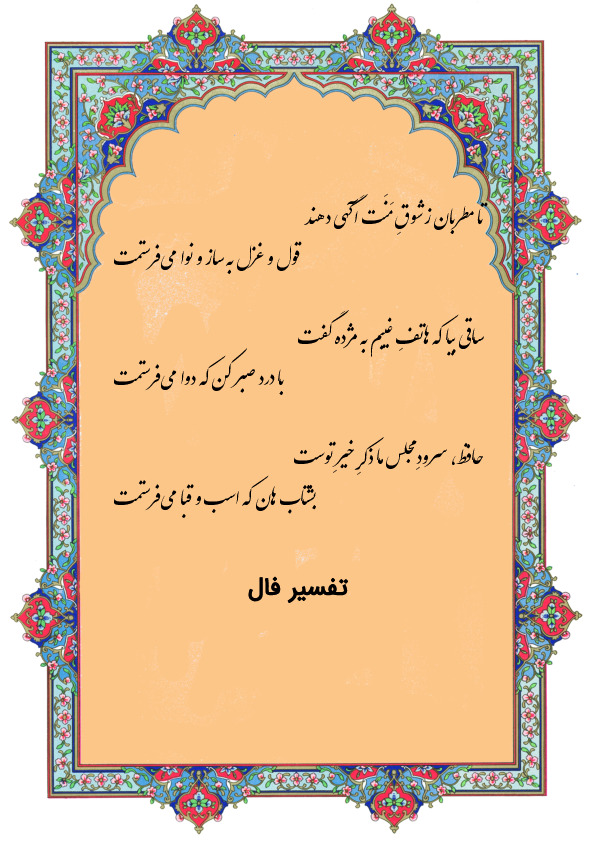 تا مطربان ز شوقِ مَنَت آگهی دهند
قول و غزل به ساز و نوا می‌فرستمت
ساقی بیا که هاتفِ غیبم به مژده گفت
با درد صبر کن که دوا می‌فرستمت
حافظ، سرودِ مجلس ما ذکرِ خیرِ توست
بشتاب هان که اسب و قبا می‌فرستمت
تفسیر فال